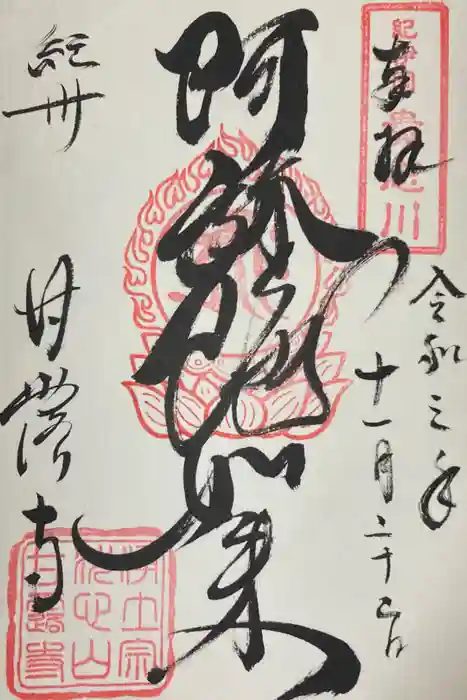 奉拝
令和三年
十一月二十三日
阿弥陀如来
紀州
甘露寺
貴志川
浄土宗
甘露寺